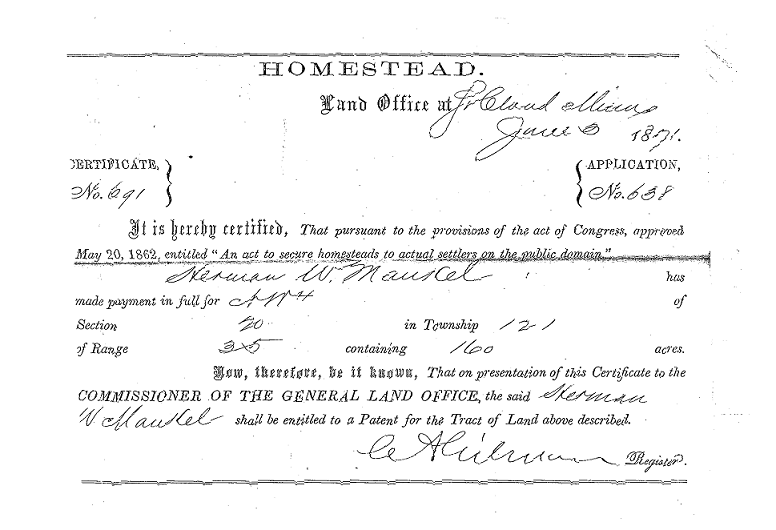 HOMESTEAD.
Land Office at St Cloud Minn
June 3 1871.
CERTIFICATE, } { APPLICATION,
No. 691 No. 638
It is hereby certified, That pursuant to the provisions of the act of Congress, approved
May 20, 1862, entitled "An act to secure homesteads to actual settlers on the public domain,"
Sherman W. Mauskel has
made payment in full for NW4 of
Section 20 in Township 121
of Range 35 containing 160 acres.
Now, therefore, be it known, That on presentation of this Certificate to the
COMMISSIONER OF THE GENERAL LAND OFFICE, the said Sherman
W Mauskel shall be entitled to a Patent for the Tract of Land above described.
Register.